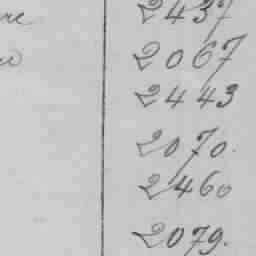 2437
2067
2443
2070.
2460
2079.